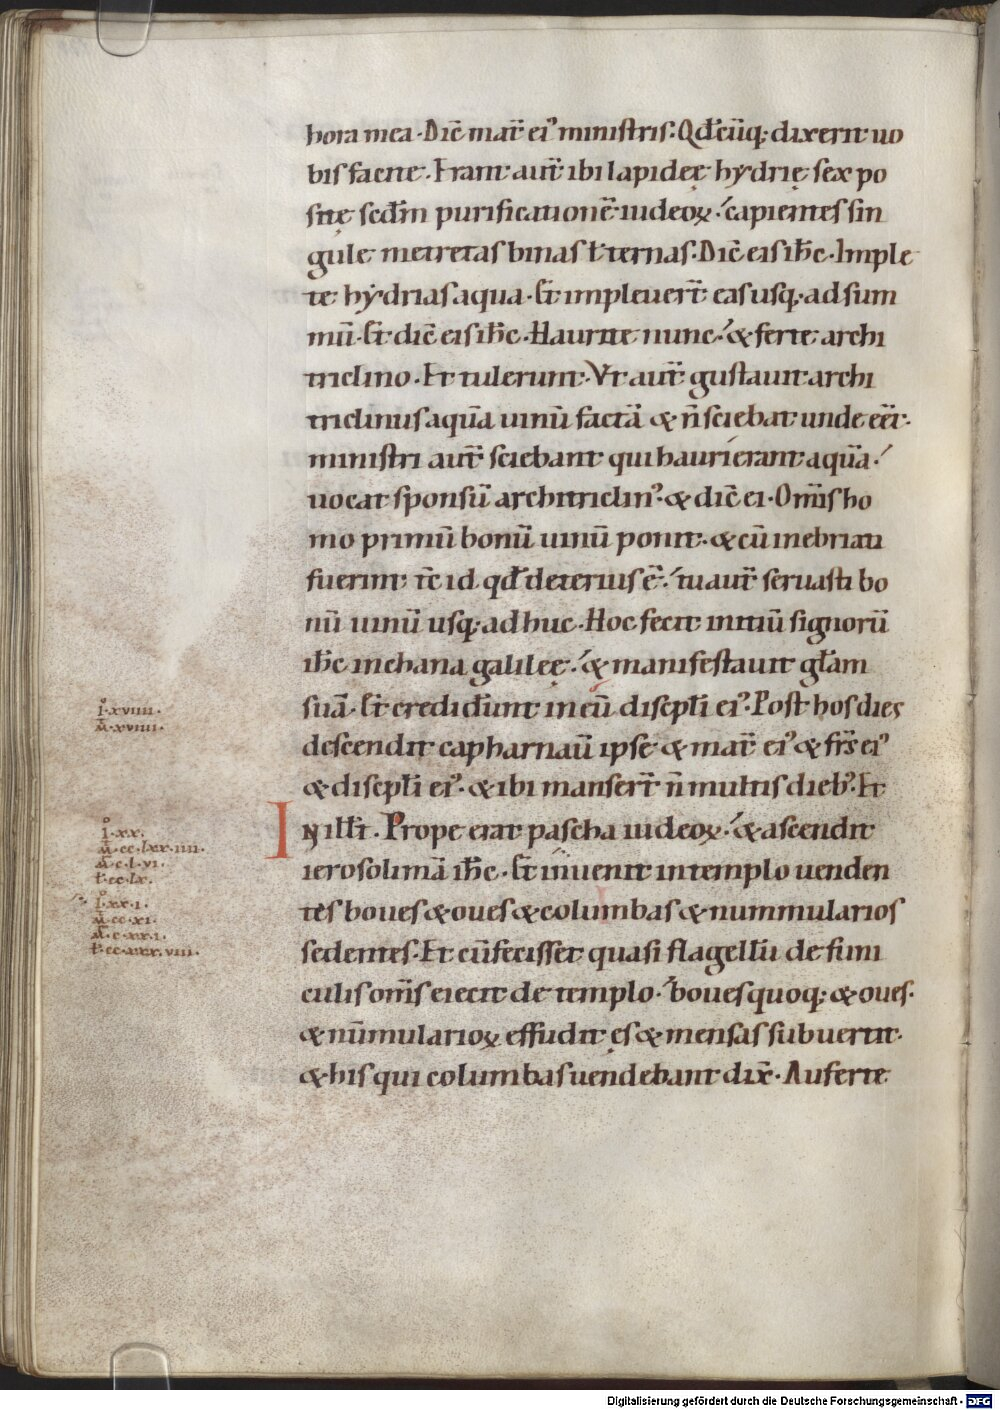 hora mea. Dic̄ mat̄ ei᾿ ministris. Qd̄cūq; dixerit uo
bis facite. Erant aut̄ ibi lapideę hydrię sex po
sitę scd̄m purificationē iudeoꝝ. capientes sin
gulę metretas binas ł ternas. Dic̄ eis ih̄c. Imple
te hydrias aqua. Et impleuer̄ eas usq; ad sum
mū. Et dic̄ eis ih̄c. Haurite nunc. & ferte archi
triclino. Et tulerunt. Vt aut̄ gustauit archi
triclinus aquā uinū factā & n̄ sciebat unde eēt.
ministri aut̄ sciebant qui haurierant aquā.
uocat sponsū architriclin᾿. & dic̄ ei. Om̄is ho
mo primū bonū uinū ponit. & cū inebriati
fuerint tc̄ id qd̄ deterius ē. tu aut̄ seruasti bo
nū uinū usq; adhuc. Hoc fecit initiū signorū
ih̄c in chana galileę. & manifestauit gl̄am
suā. Et credider̄unt in eū discipl̄i ei᾿. Post hos dies
descendit capharnaū ipse & mat̄ ei᾿ & fr̄s ei᾿
& discipl̄i ei᾿. & ibi manser̄t n̄ multis dieb᾿. Et
IN ill̄t. Prope erat pascha iudeoꝝ. & ascendit
ierosolimā ih̄c. Et inuenit in templo uenden
tes boues & oues & columbas & nummularios
sedentes. Et cū fecisset quasi flagellū de funi
culis om̄s eiecit de templo. boues quoq; & oues.
& nūmularioꝝ effudit ęs & mensas subuertit.
& his qui columbas uendebant dix̄. Auferte
I. xviiii.
M̄. xviiii.
I. xx.
M̄. cc. lxx. iiii.
M̄. c. l. vi.
ł. cc. lx.
I. xx. i.
M̄. cc. xi.
M̄. c. xx. i.
ł. cc. xxx. viii.
Digitalisierung gefördert durch die Deutsche Forschungsgemeinschaft - DFG